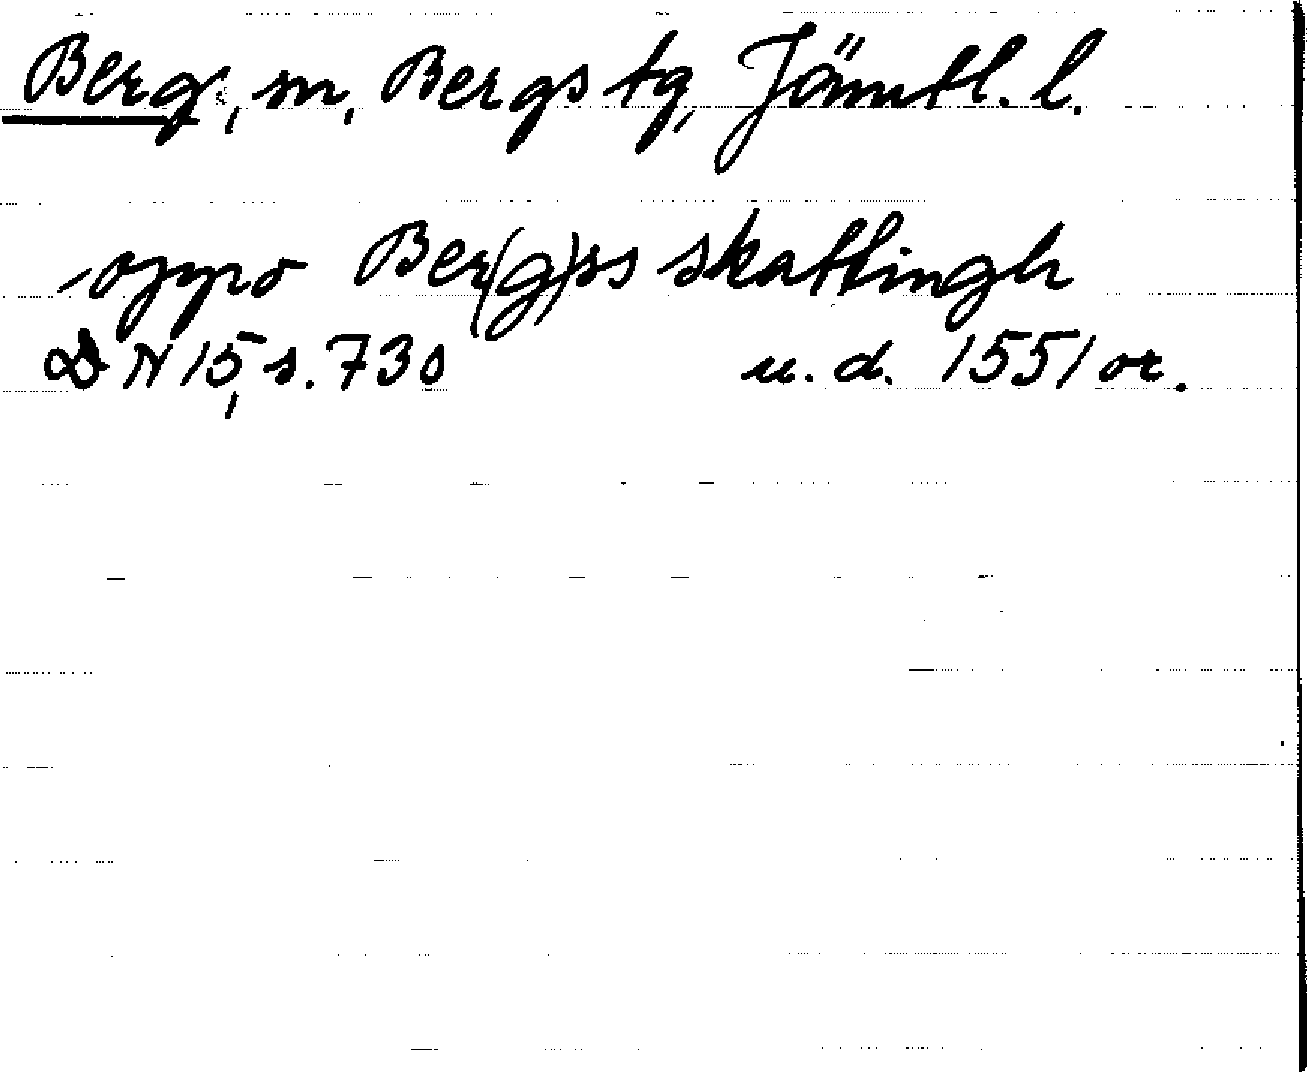 Berg, sn, Bergs tg, Jämtl. l.
oppo Ber(g)ss skattingh
DN 15, s. 730 u. d. 1551 or.